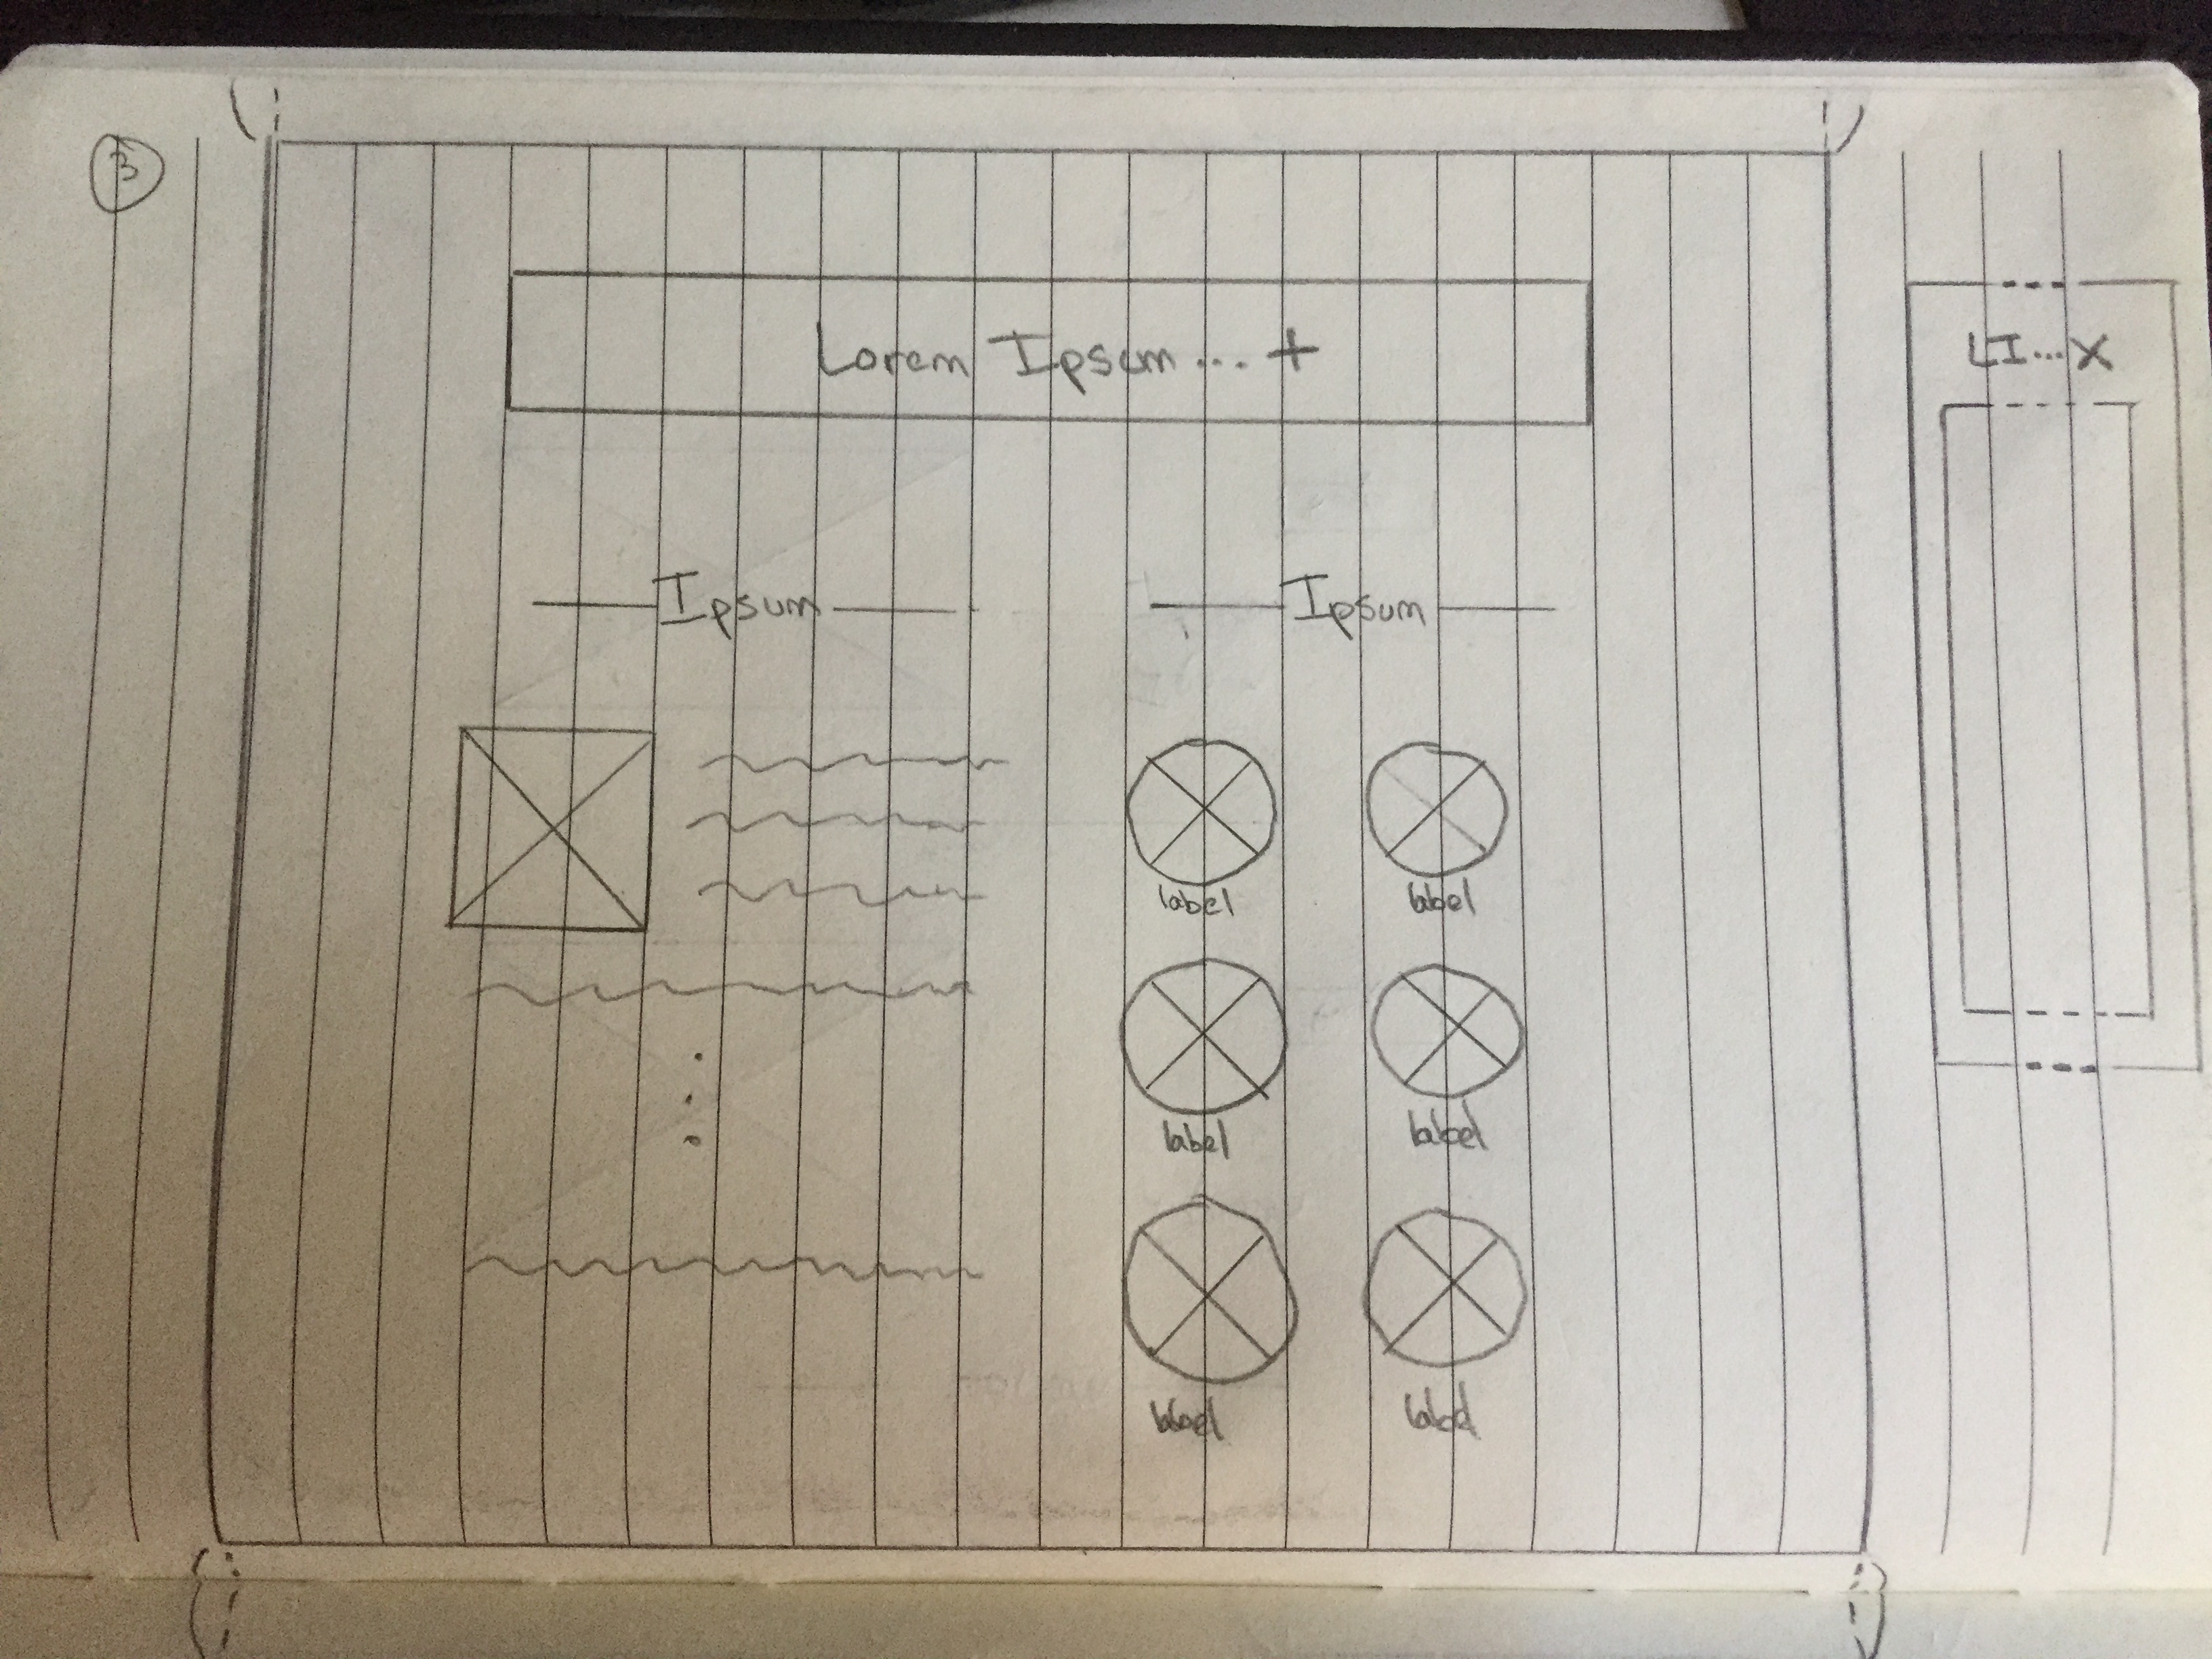 3
Lorem Ipsum ... +
LI....X
Ipsum
Ipsum
label label
label label
label label